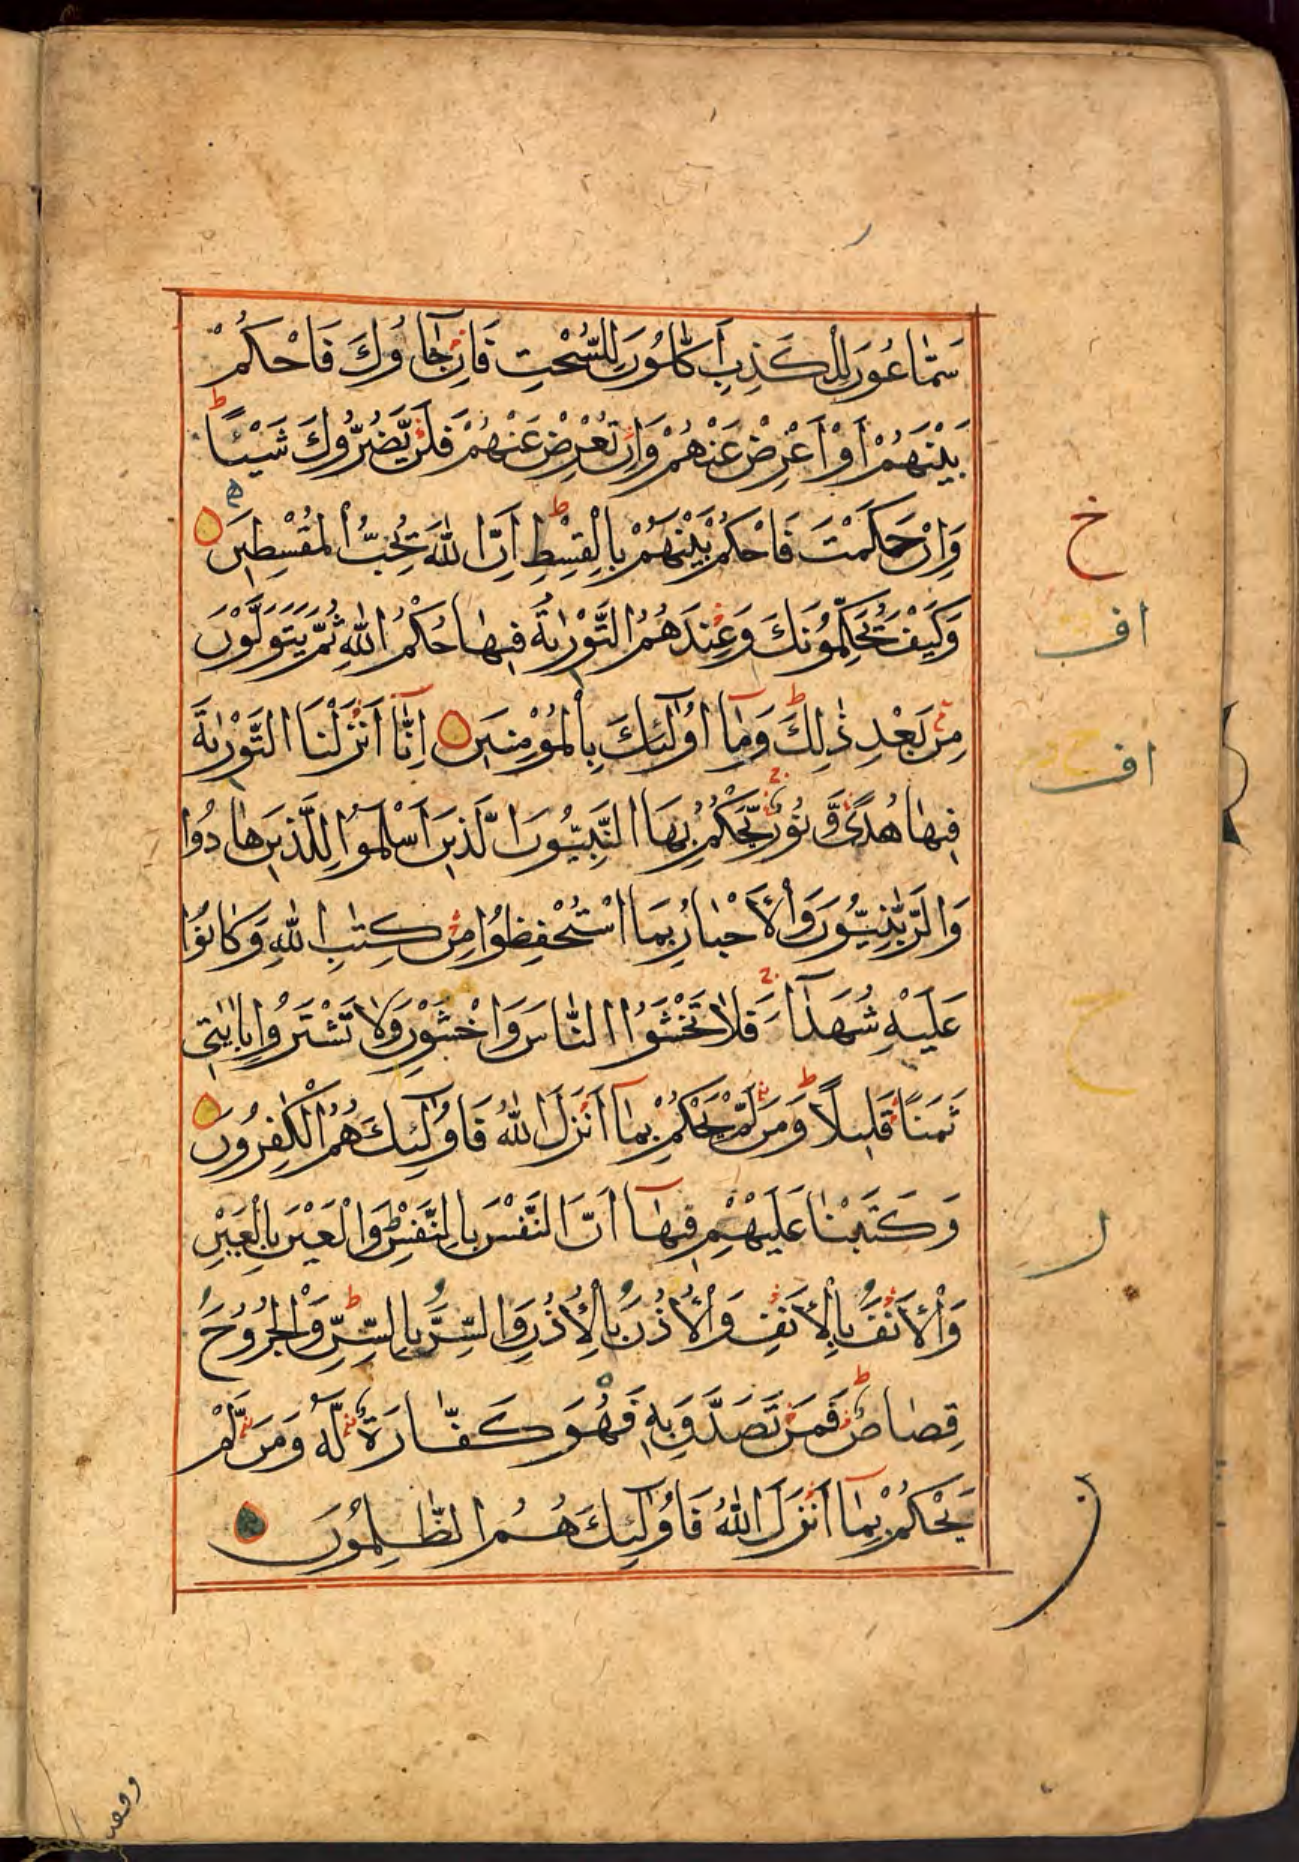 سَمَّاعُونَ لِلْكَذِبِ اَكَّالُونَ لِلسُّحْتِ فَاِنْ جَآؤُكَ فَاحْكُمْ
بَيْنَهُمْ اَوْ اَعْرِضْ عَنْهُمْ وَاِنْ تُعْرِضْ عَنْهُمْ فَلَنْ يَّضُرُّوكَ شَيْئًا ط
وَاِنْ حَكَمْتَ فَاحْكُمْ بَيْنَهُمْ بِالْقِسْطِ ط اِنَّ اللّٰهَ يُحِبُّ الْمُقْسِطِينَ
وَكَيْفَ يُحَكِّمُونَكَ وَعِنْدَهُمُ التَّوْرٰىةُ فِيهَا حُكْمُ اللّٰهِ ثُمَّ يَتَوَلَّوْنَ
مِنْ بَعْدِ ذٰلِكَ ط وَمَآ اُولٰٓئِكَ بِالْمُؤْمِنِينَ اِنَّآ اَنْزَلْنَا التَّوْرٰىةَ
فِيهَا هُدًى وَّ نُورٌ يَحْكُمُ بِهَا النَّبِيُّونَ الَّذِينَ اَسْلَمُوا لِلَّذِينَ هَادُوا
وَالرَّبّٰنِيُّونَ وَالْاَحْبَارُ بِمَا اسْتُحْفِظُوا مِنْ كِتٰبِ اللّٰهِ وَكَانُوا
عَلَيْهِ شُهَدَآءَ فَلَا تَخْشَوُا النَّاسَ وَاخْشَوْنِ وَلَا تَشْتَرُوا بِاٰيٰتِي
ثَمَنًا قَلِيلًا ط وَمَنْ لَّمْ يَحْكُمْ بِمَآ اَنْزَلَ اللّٰهُ فَاُولٰٓئِكَ هُمُ الْكٰفِرُونَ
وَكَتَبْنَا عَلَيْهِمْ فِيهَآ اَنَّ النَّفْسَ بِالنَّفْسِ وَالْعَيْنَ بِالْعَيْنِ
وَالْاَنْفَ بِالْاَنْفِ وَالْاُذُنَ بِالْاُذُنِ وَالسِّنَّ بِالسِّنِّ ط وَالْجُرُوحَ
قِصَاصٌ ط فَمَنْ تَصَدَّقَ بِهِ فَهُوَ كَفَّارَةٌ لَّهُ وَمَنْ لَّمْ
يَحْكُمْ بِمَآ اَنْزَلَ اللّٰهُ فَاُولٰٓئِكَ هُمُ الظّٰلِمُونَ
خ
اف
اف
ح
ر
ن